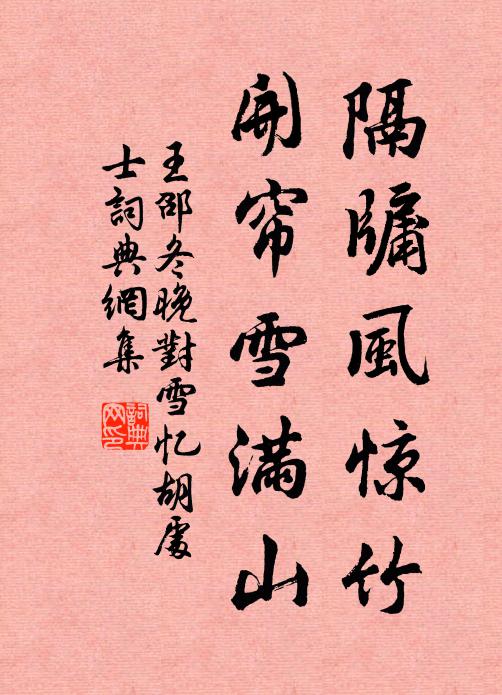 隔牖風惊竹
開帘雪满山
王邵冬晚對雪忆胡處
士詞典網集
詞典
网印